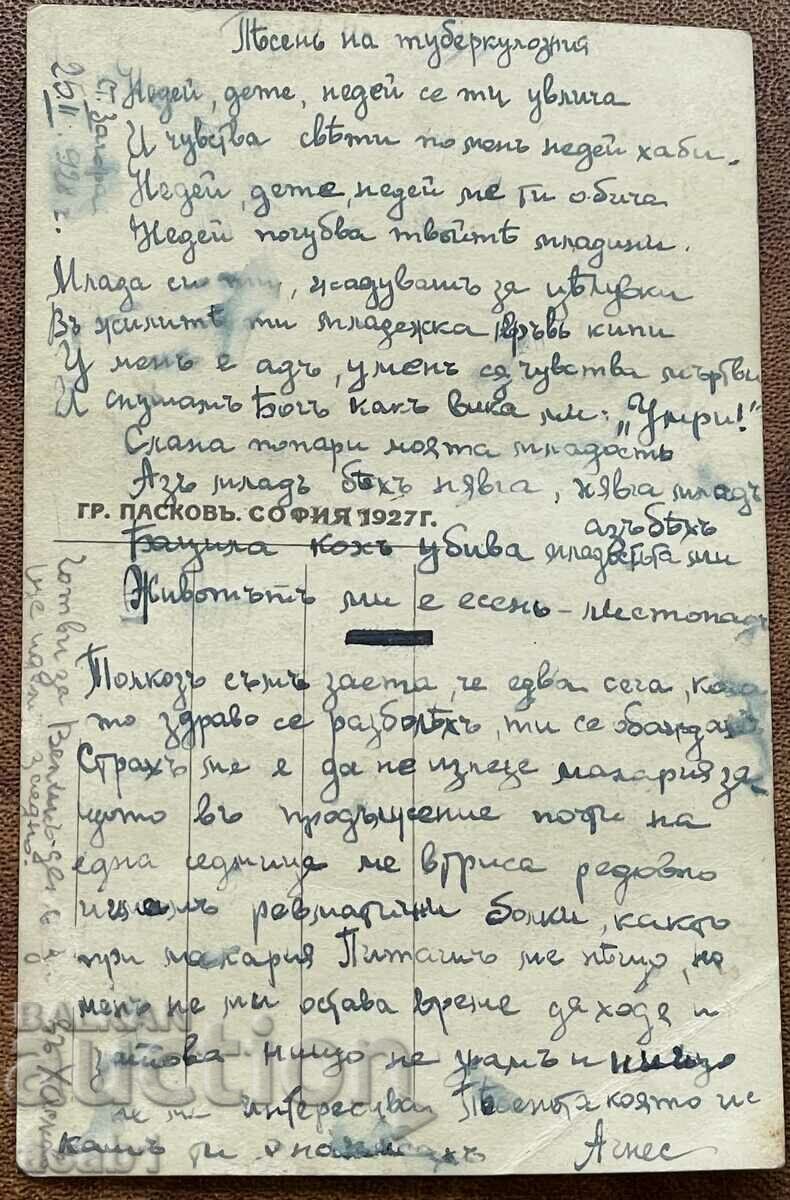 Пѣсень на туберкулозния
Недей, дете, недей се ти увлича
И чувства свѣти по менъ недей хаби.
Недей, дете, недей ме ти обича
Недей погубва твоитѣ младини.
Млада си ти, жадувашъ за цѣлувки
Въ жилитѣ ти младежка кръвь кипи
У менъ е адъ, у менъ са чувства мъртви
И слушамъ Богъ какъ вика ми: "Умри!"
Слана попари моята младость
Азъ младъ бѣхъ нявга, нявга младъ
азъ бѣхъ
ГР. ПАСКОВЪ. СОФИЯ 1927 Г.
Бацила кохъ убива младостьта ми
Животътъ ми е есень - листопадъ
Толкозъ съмъ заета, че едва сега, кога
то здраво се разболѣхъ, ти се обаждамъ
Страхъ ме е да не излезе малария за
щото въ продължение почти на
една седмица ме втриса редовно
имамъ ревматични болки, както
при малария Питашъ ме нѣщо, но
менъ не ми остава време да ходя и
затова нищо не знамъ и нищо
не ме интересува Пѣсеньта която ис
кашъ ти я написахъ Агнес
Ст. Загора
25.II.928 г.
Готви за Великъ-день
ще идемъ заедно.
BALKAN
auction